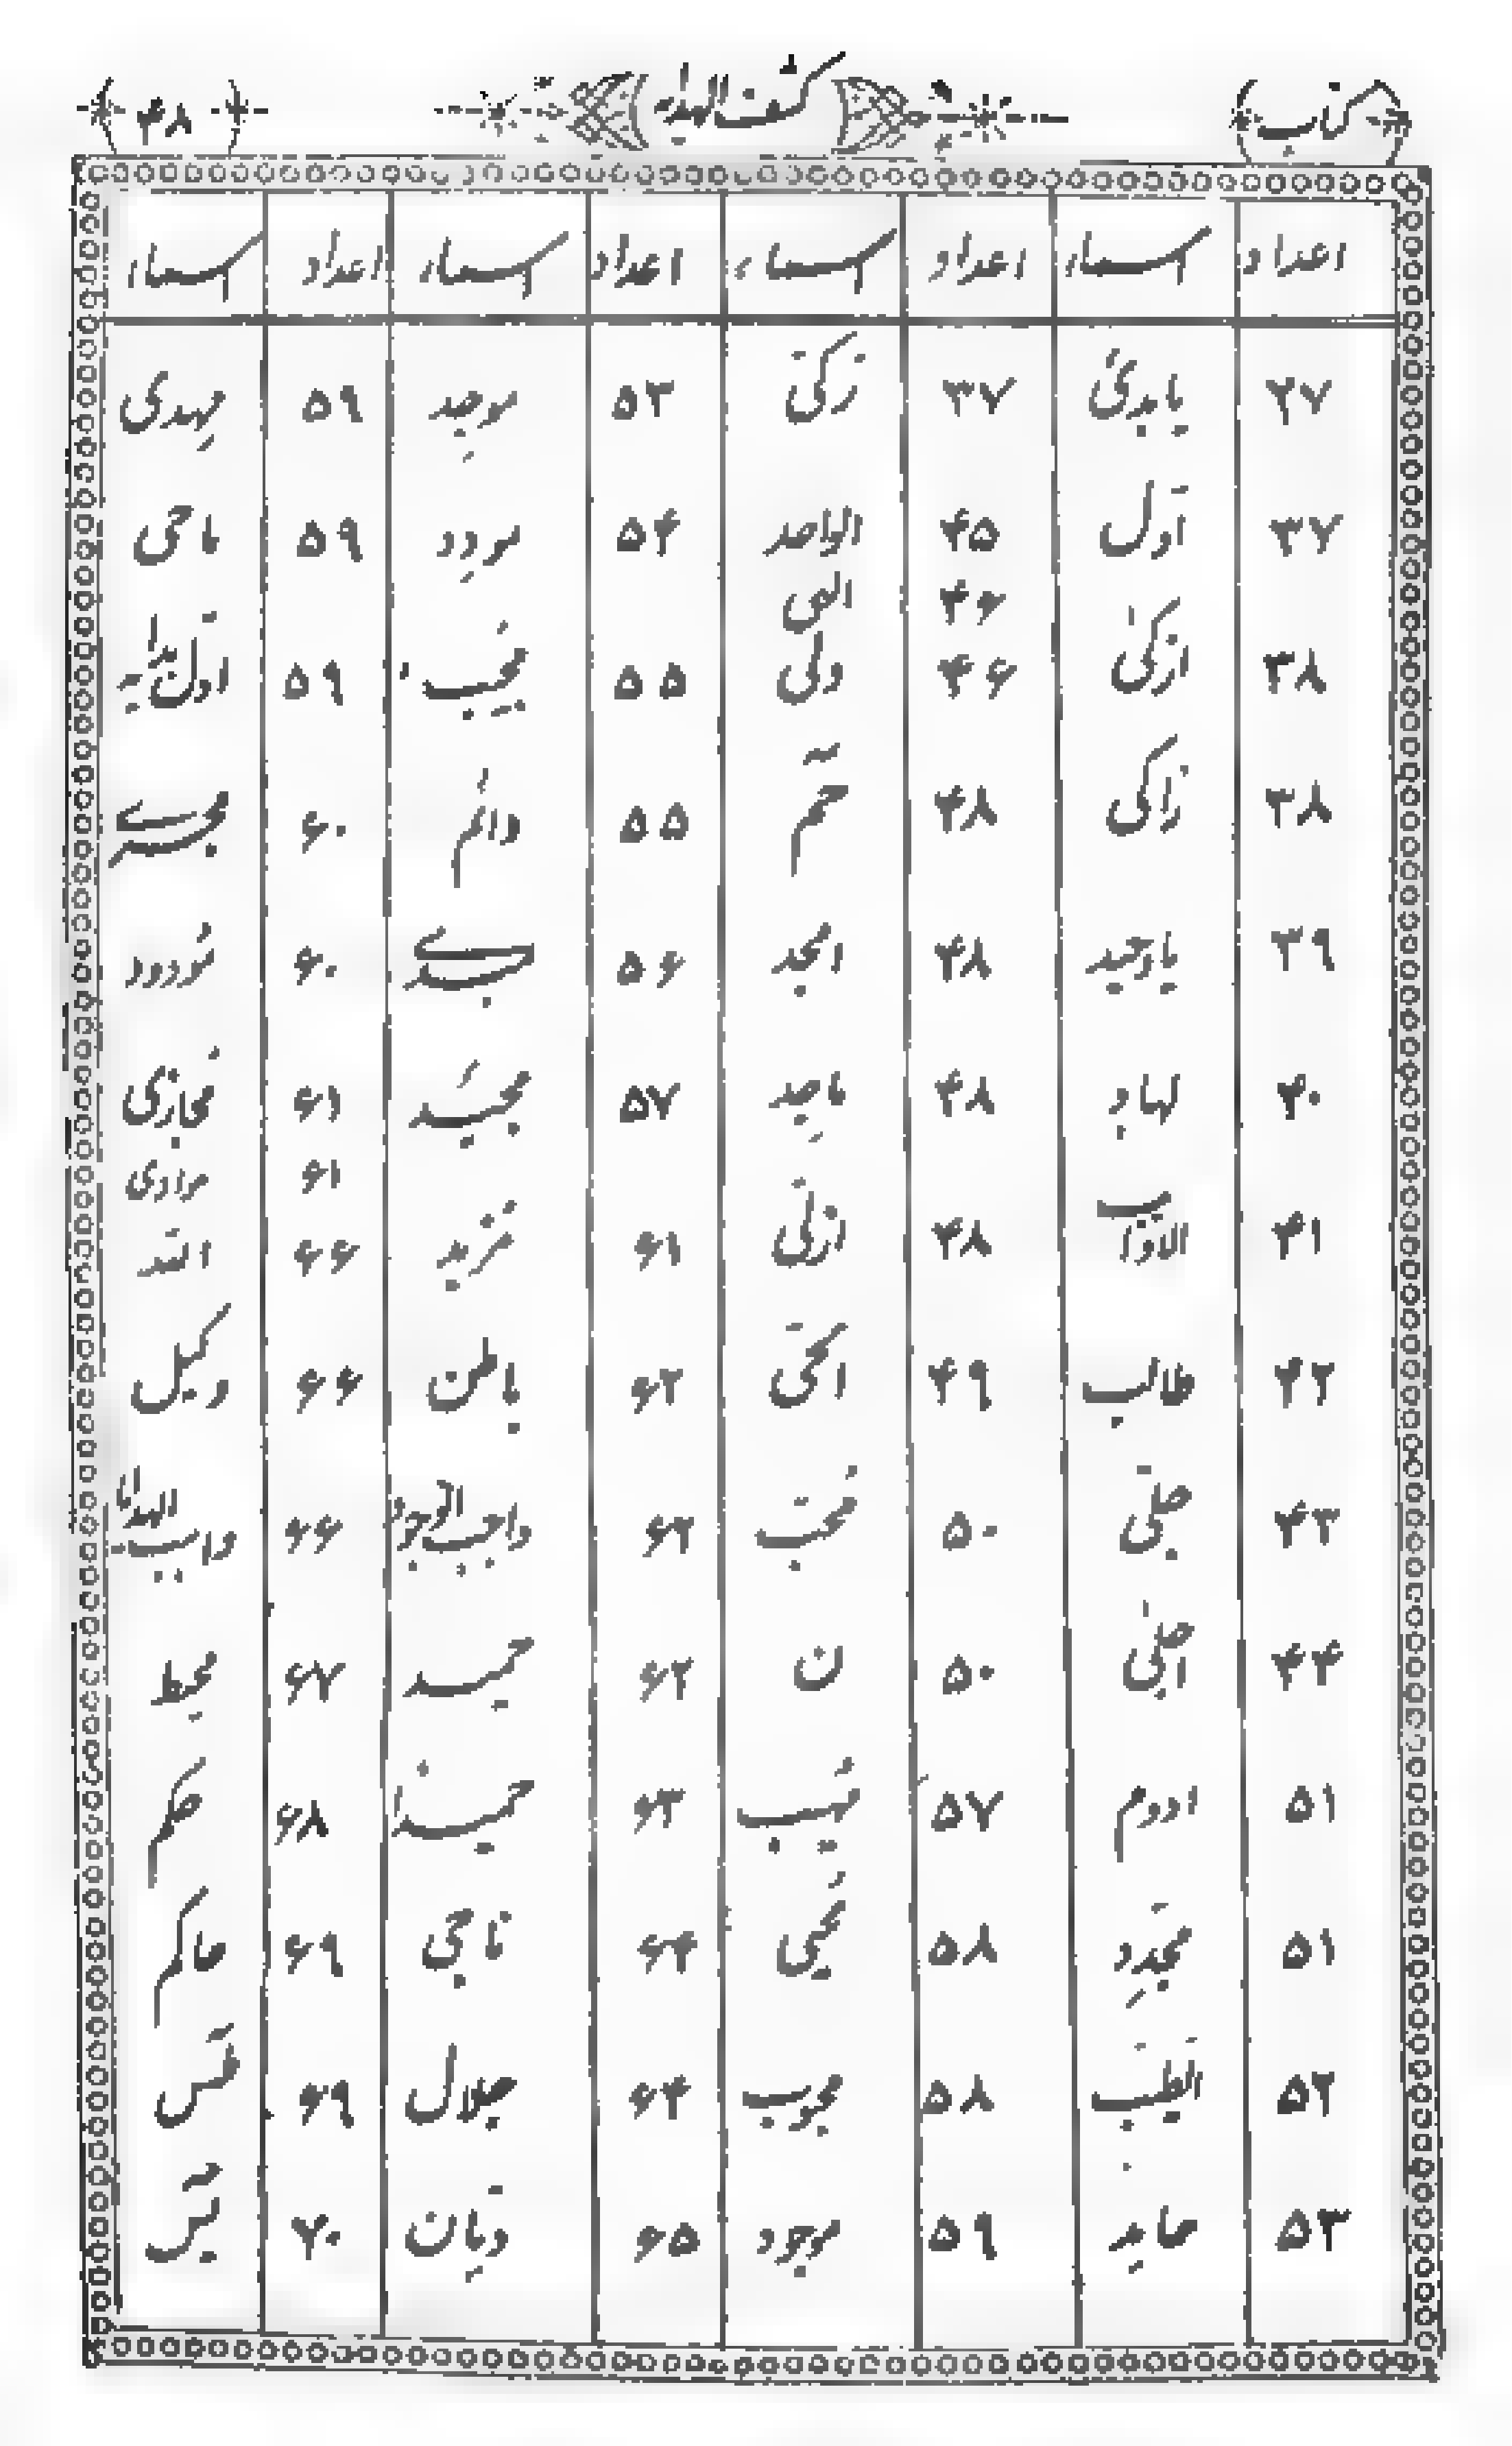 کتاب کشف الہدایہ ۴۸
اعداد اسماء اعداد اسماء اعداد اسماء اعداد اسماء
۲۷ یا بدیٔ ۳۷ زکیّ ۵۳ موجِد ۵۹ مہدی
۳۷ اوّل ۴۵ الواحد ۵۴ مودِد ۵۹ ماحی
۴۶ الہی
۳۸ ازکیٰ ۴۶ ولی ۵۵ مُجیب ۵۹
۳۸ زاکی ۴۸ حٰمٓ ۵۵ دائم ۶۰
۳۹ یا وحید ۴۸ امجد ۵۶ ۶۰ مُودود
۴۰ ۴۸ ماجِد ۵۷ مجید ۶۱ مُجازی
۶۱ مرادی
۴۱ الاوّاب ۴۸ ازلیّ ۶۱ مُزید ۶۶ اللّہ
۴۲ طالب ۴۹ الحیّ ۶۲ باطن ۶۶ وکیل
۴۳ جلیّ ۵۰ مُحبّ ۶۲ واجب الوجود ۶۶
۴۴ اجلیٰ ۵۰ ن ۶۲ حمید ۶۷ محیط
۵۱ ادوم ۵۷ مُہیب ۶۳ ۶۸ حکم
۵۱ مجدّدِ ۵۸ مُحیی ۶۴ ناجی ۶۹ حاکم
۵۲ الطیّب ۵۸ محبوب ۶۴ جلال ۶۹ طٰسٓ
۵۳ حامد ۵۹ موجود ۶۵ دیّان ۷۰ یٰسٓ